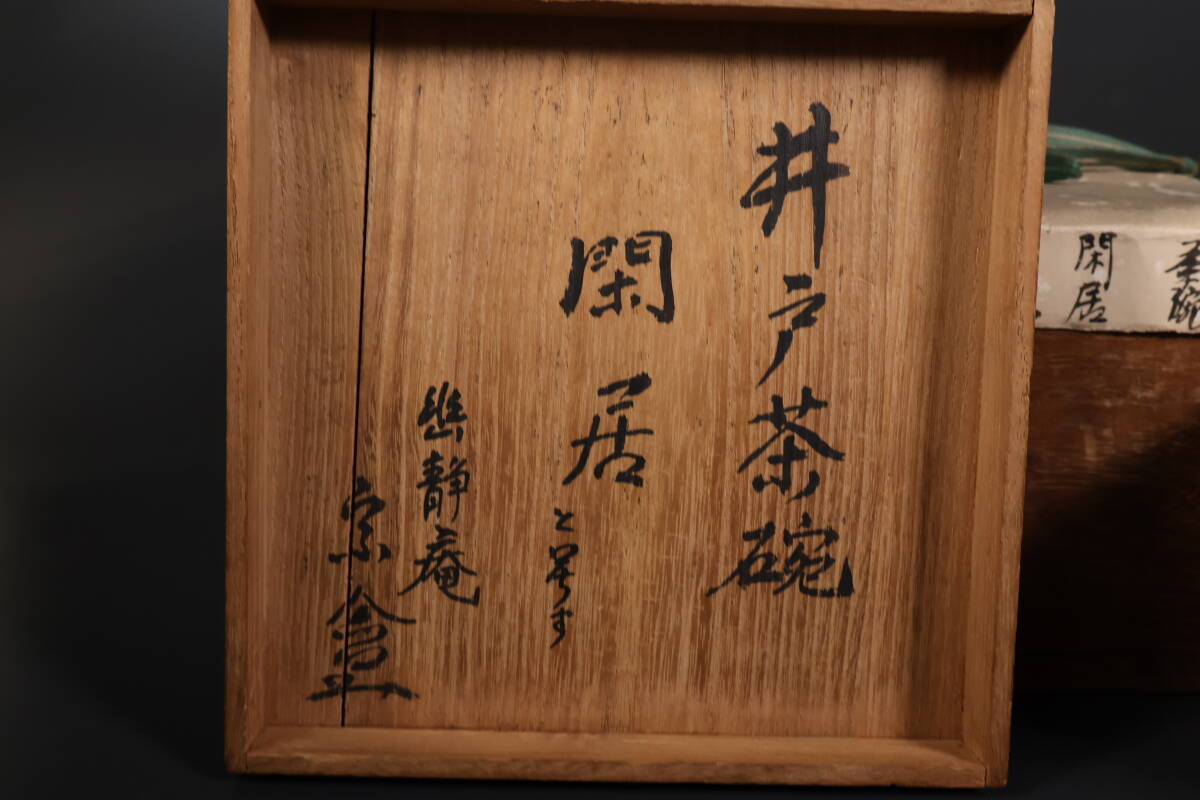 井戸茶碗
閑居と号す
幽静庵
宗
茶碗
閑居